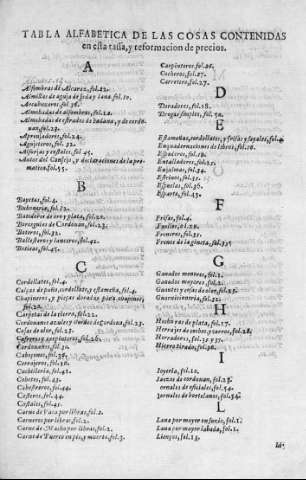 TABLA ALFABETICA DE LAS COSAS CONTENIDAS
en esta tassa, y reformacion de precios.
A
Alfombras de Alcaraz, fol.12.
Almillas de aguja de seda y lana, fol.10.
Arcabuzeros fol.36.
Almohadas de alfombras, fol.12.
nan, fol.23.
Aprensadores, fol.24.
Agujeteros, fol.32.
Alforjas y costales, fol.45.
Autos del Consejo, y declaraciones de la prematica, fol.55.
B
Bayetas, fol.4.
Bohoneria, fol.12.
Bordados de oro y plata, fol.
Borzeguies de Cordouan, fol.23.
Boteros, fol.31.
Ballesteros y lanceros, fol.41.
Botinas, fol.45.
C
Cordellates, fol.4.
Calças de paño, cordellate, y estameña, fol.4.
Chapineros, y pieças doradas para chapines, fol.20.
Carpetas de la tierra, fol.22.
Cordouanes
Colas de olor, fol.23.
Cofreros y arquitadores, fol.26.
Cordoneros, fol.
Cabestros, fol.
Cerrajeros, fol.
Cuchilleria, fol.41.
Coheteros, fol.43.
Cabestreros, fol.44.
Cesteros, fol.44.
Costales, fol.45.
Carne de Vaca por libras, fol.2.
Carnero por libras, fol.2.
Carne de Macho por libras, fol.2.
Carne de Puerco en pie, y muerto, fol.3.
Carpinteros fol.26.
Cocheros, fol.27.
Carretero, fol.27.
D
Doradores, fol.28.
Drogas simples, fol.50.
E
Estameñas, cordellates, y frisas y sayales, fol.4.
Enquadernaciones de libros, fol.16.
Espaderos, fol.19.
Entalladores, fol.25.
Enjalmas, fol.34.
Esteras, fol.35.
Espuelas, fol.36.
Esparto, fol.45.
F
Frisas, fol.4.
Fustan, fol.28.
Freneros, fol.35.
Frenos de la gineta, fol.35.
G
Ganados menores, fol.1.
Ganados mayores, fol.2.
Guantes y cosas de olor, fol.23.
Guarnicioneria, fol.32.
H
Hechuras de plata, fol.17.
Herrajes de coches y carros, fol.28.
Herradores, fol.35.
Hierro tirado, fol.38.
I
Ioyeria, fol.10.
Iaezes de cordouan, fol.23.
Iornales de oficiales, fol.54.
Iornales de hortelanos, fol.54.
L
Lana por mayor en sucio, fol.1.
Lana por mayor labada, fol.1.
Lienços, fol.13.